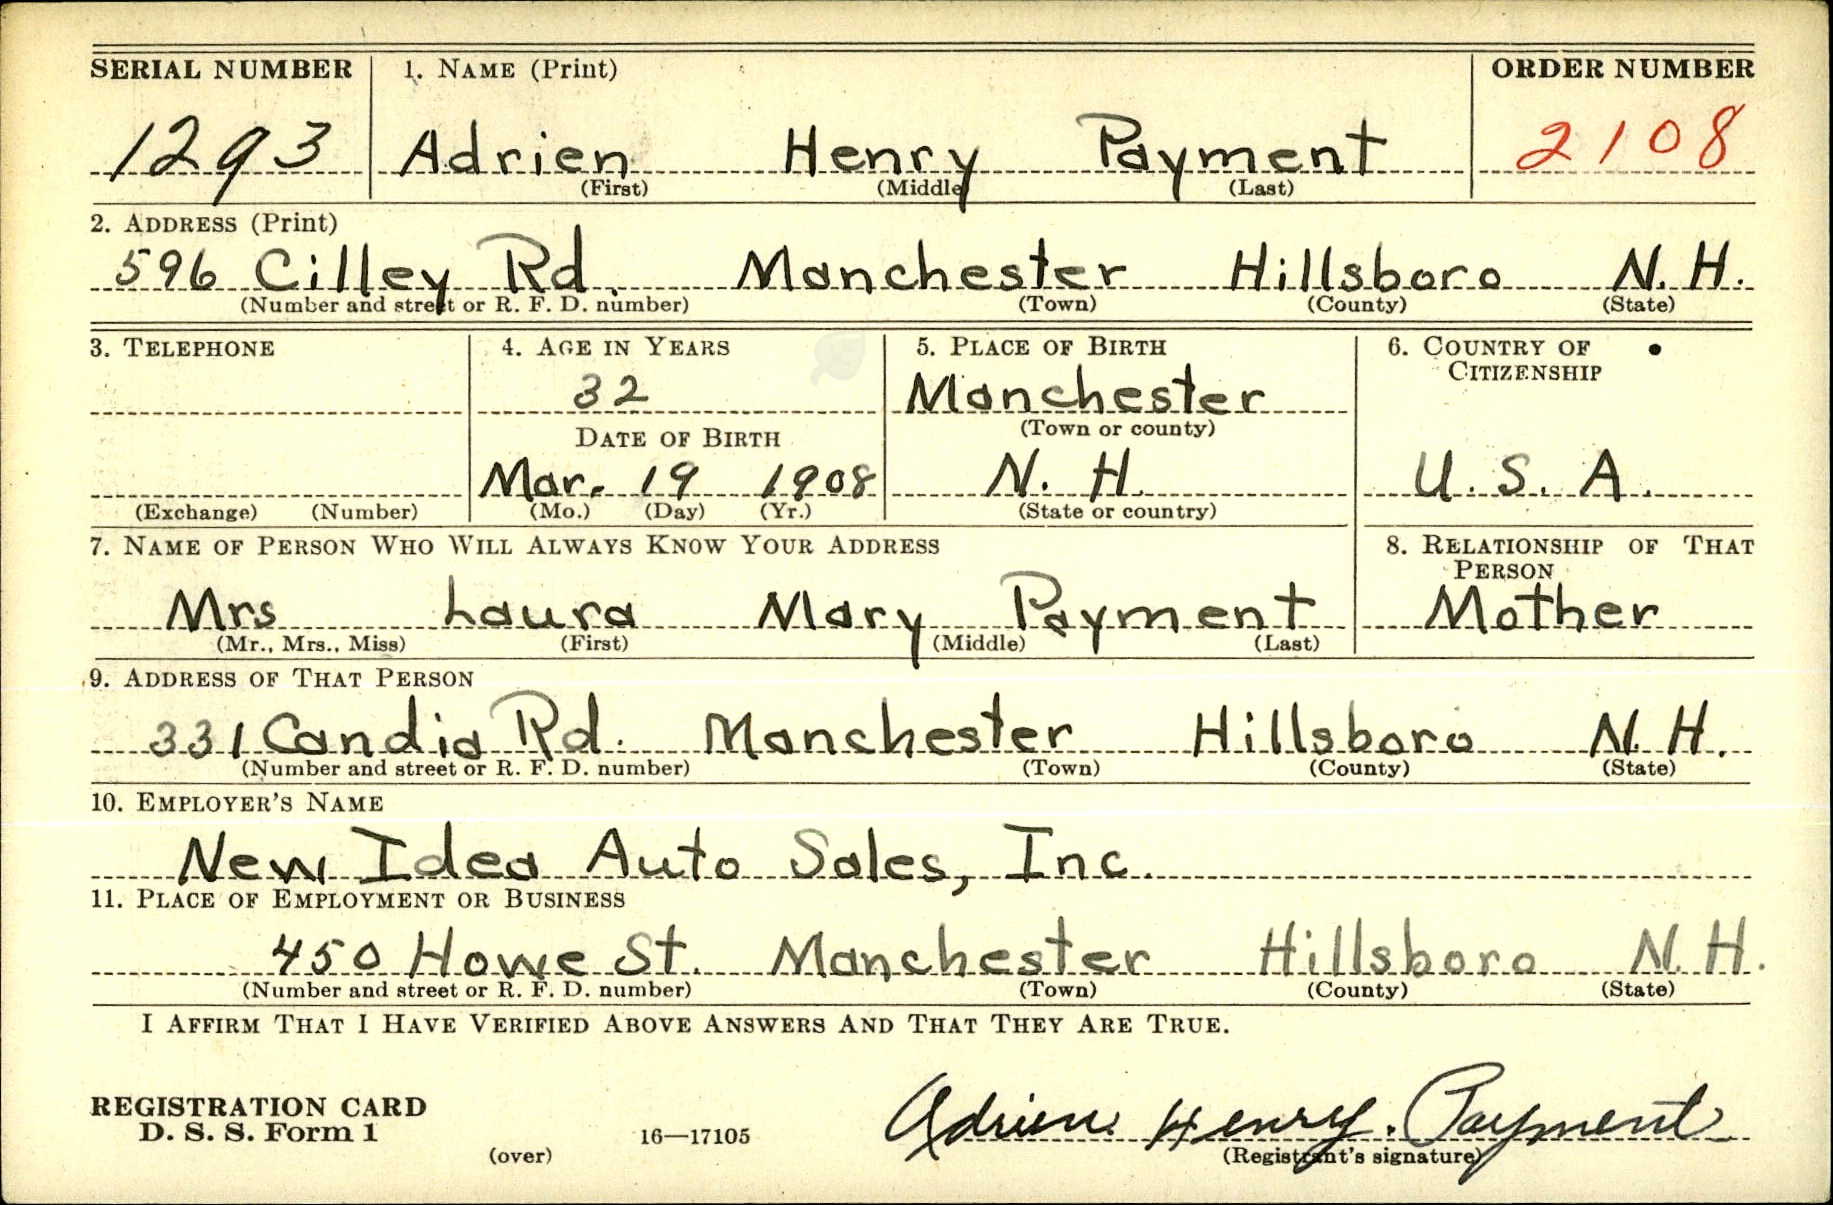 SERIAL NUMBER 1. NAME (Print) ORDER NUMBER
1293 Adrien Henry Payment 2108
(First) (Middle) (Last)
2. ADDRESS (Print)
596 Cilley Rd. Manchester Hillsboro N. H.
(Number and street or R. F. D. number) (Town) (County) (State)
3. TELEPHONE 4. AGE IN YEARS 5. PLACE OF BIRTH 6. COUNTRY OF
CITIZENSHIP
32 Manchester
(Town or county)
DATE OF BIRTH
Mar. 19 1908 N. H. U. S. A.
(Exchange) (Number) (Mo.) (Day) (Yr.) (State or country)
7. NAME OF PERSON WHO WILL ALWAYS KNOW YOUR ADDRESS 8. RELATIONSHIP OF THAT
PERSON
Mrs Laura Mary Payment Mother
(Mr., Mrs., Miss) (First) (Middle) (Last)
9. ADDRESS OF THAT PERSON
331 Candia Rd. Manchester Hillsboro N. H.
(Number and street or R. F. D. number) (Town) (County) (State)
10. EMPLOYER'S NAME
New Idea Auto Sales, Inc.
11. PLACE OF EMPLOYMENT OR BUSINESS
450 Howe St. Manchester Hillsboro N. H.
(Number and street or R. F. D. number) (Town) (County) (State)
I AFFIRM THAT I HAVE VERIFIED ABOVE ANSWERS AND THAT THEY ARE TRUE.
REGISTRATION CARD
D. S. S. Form 1 16—17105 Adrien Henry. Payment
(over) (Registrant's signature)